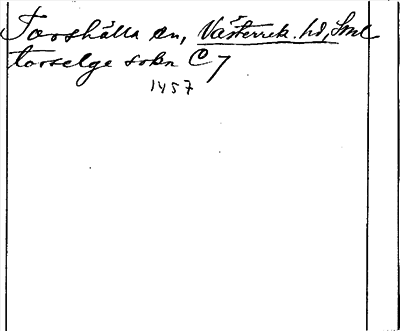 Torshälla sn, Västerrek. hd, Sml
torselge sokn C 7
1457